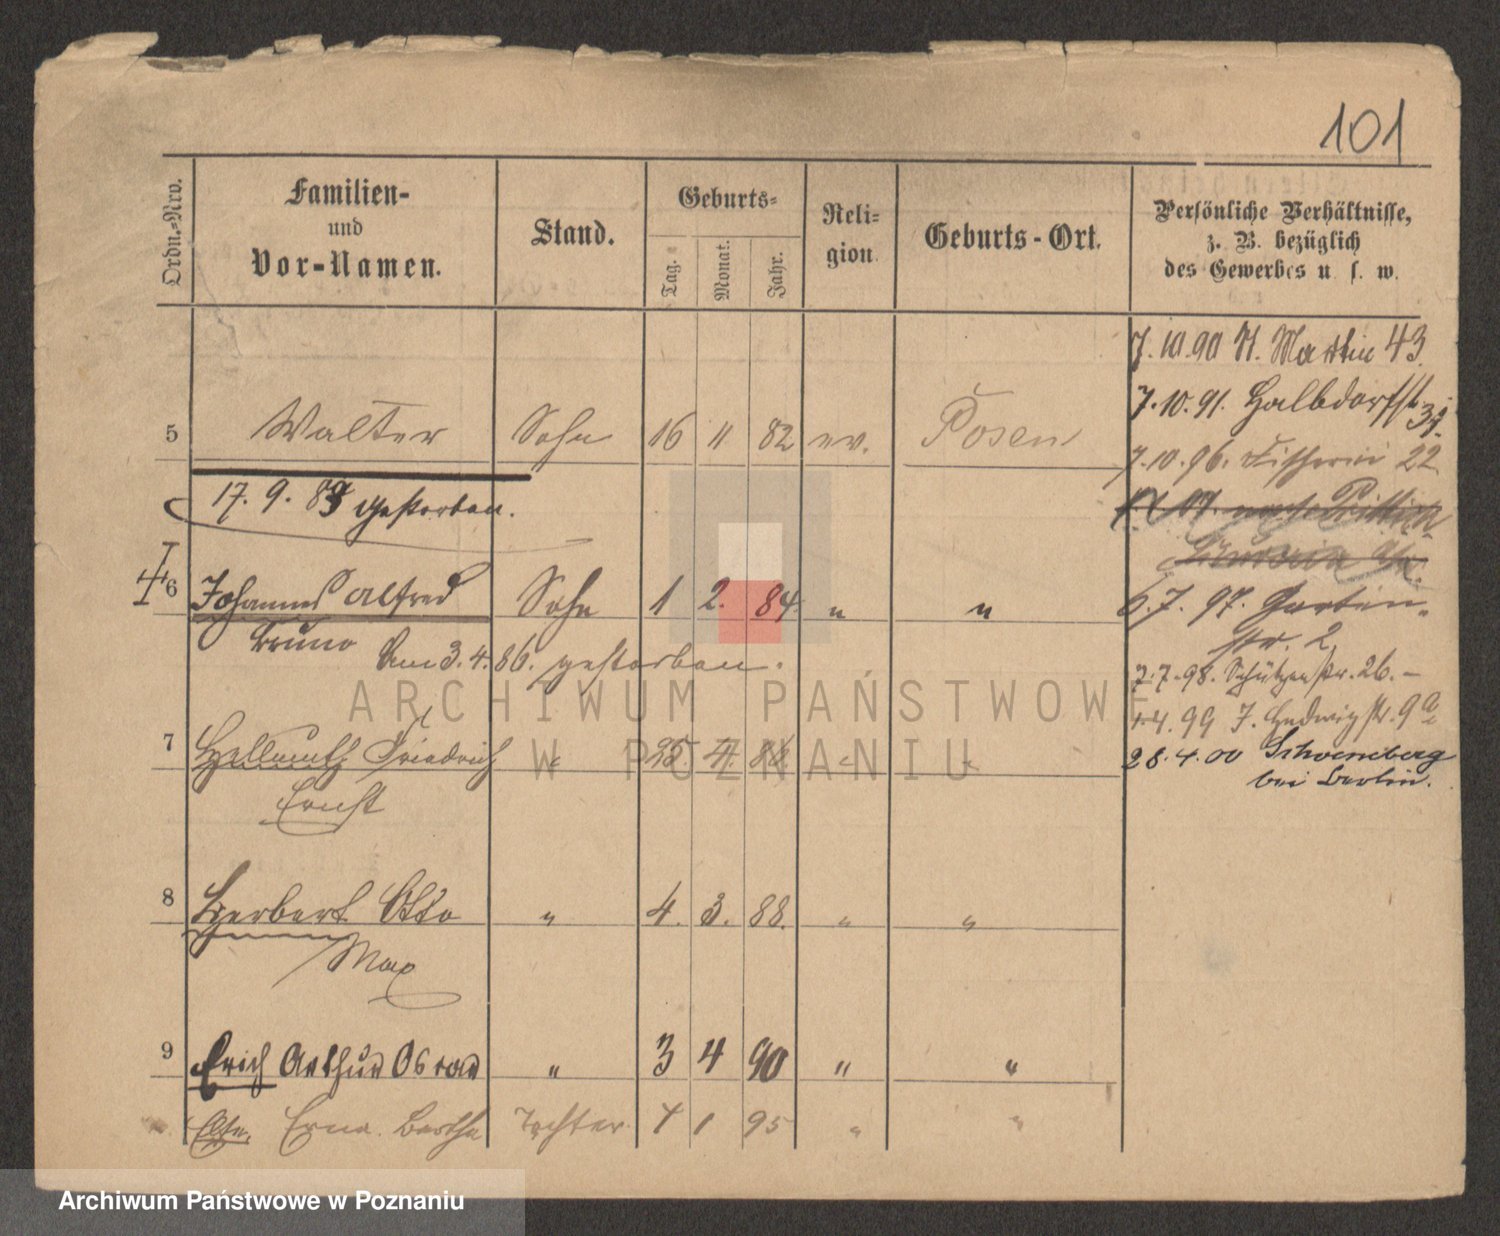 101
Ordn.-Nro.
Familien-
und
Vor-Namen.
Stand.
Geburts-
Tag.
Monat.
Jahr.
Reli-
gion
Geburts-Ort.
Persönliche Verhältnisse,
z. B. bezüglich
des Gewerbes u. s. w.
7.10.90 St. Martin 43.
7.10.91. Halbdorfstr.
5 Walter Sohn 16 11 82 ev. Posen
7.10.96. Fischerei 22
17. 9. 89 gestorben.
6 Johannes Alfred Sohn 1 2. 84. " "
6.7. 97. Garten-
str. 2
Bruno
Am 3. 4. 86. gestorben.
7.7.98. Schützenstr. 26. –
ARCHIWUM PAŃSTWOWE
W POZNANIU
1.4.99 Hedwigstr. 9a
7 Hellmuth Friedrich " 25 4. " "
28.4.00 Schoeneberg
bei Berlin.
Ernst
8 Herbert Otto " 4. 3. 88. " "
Max
9 Erich Arthur Oscar " 3 4 90 " "
Erna Bertha Tochter 1 95 " "
Archiwum Państwowe w Poznaniu